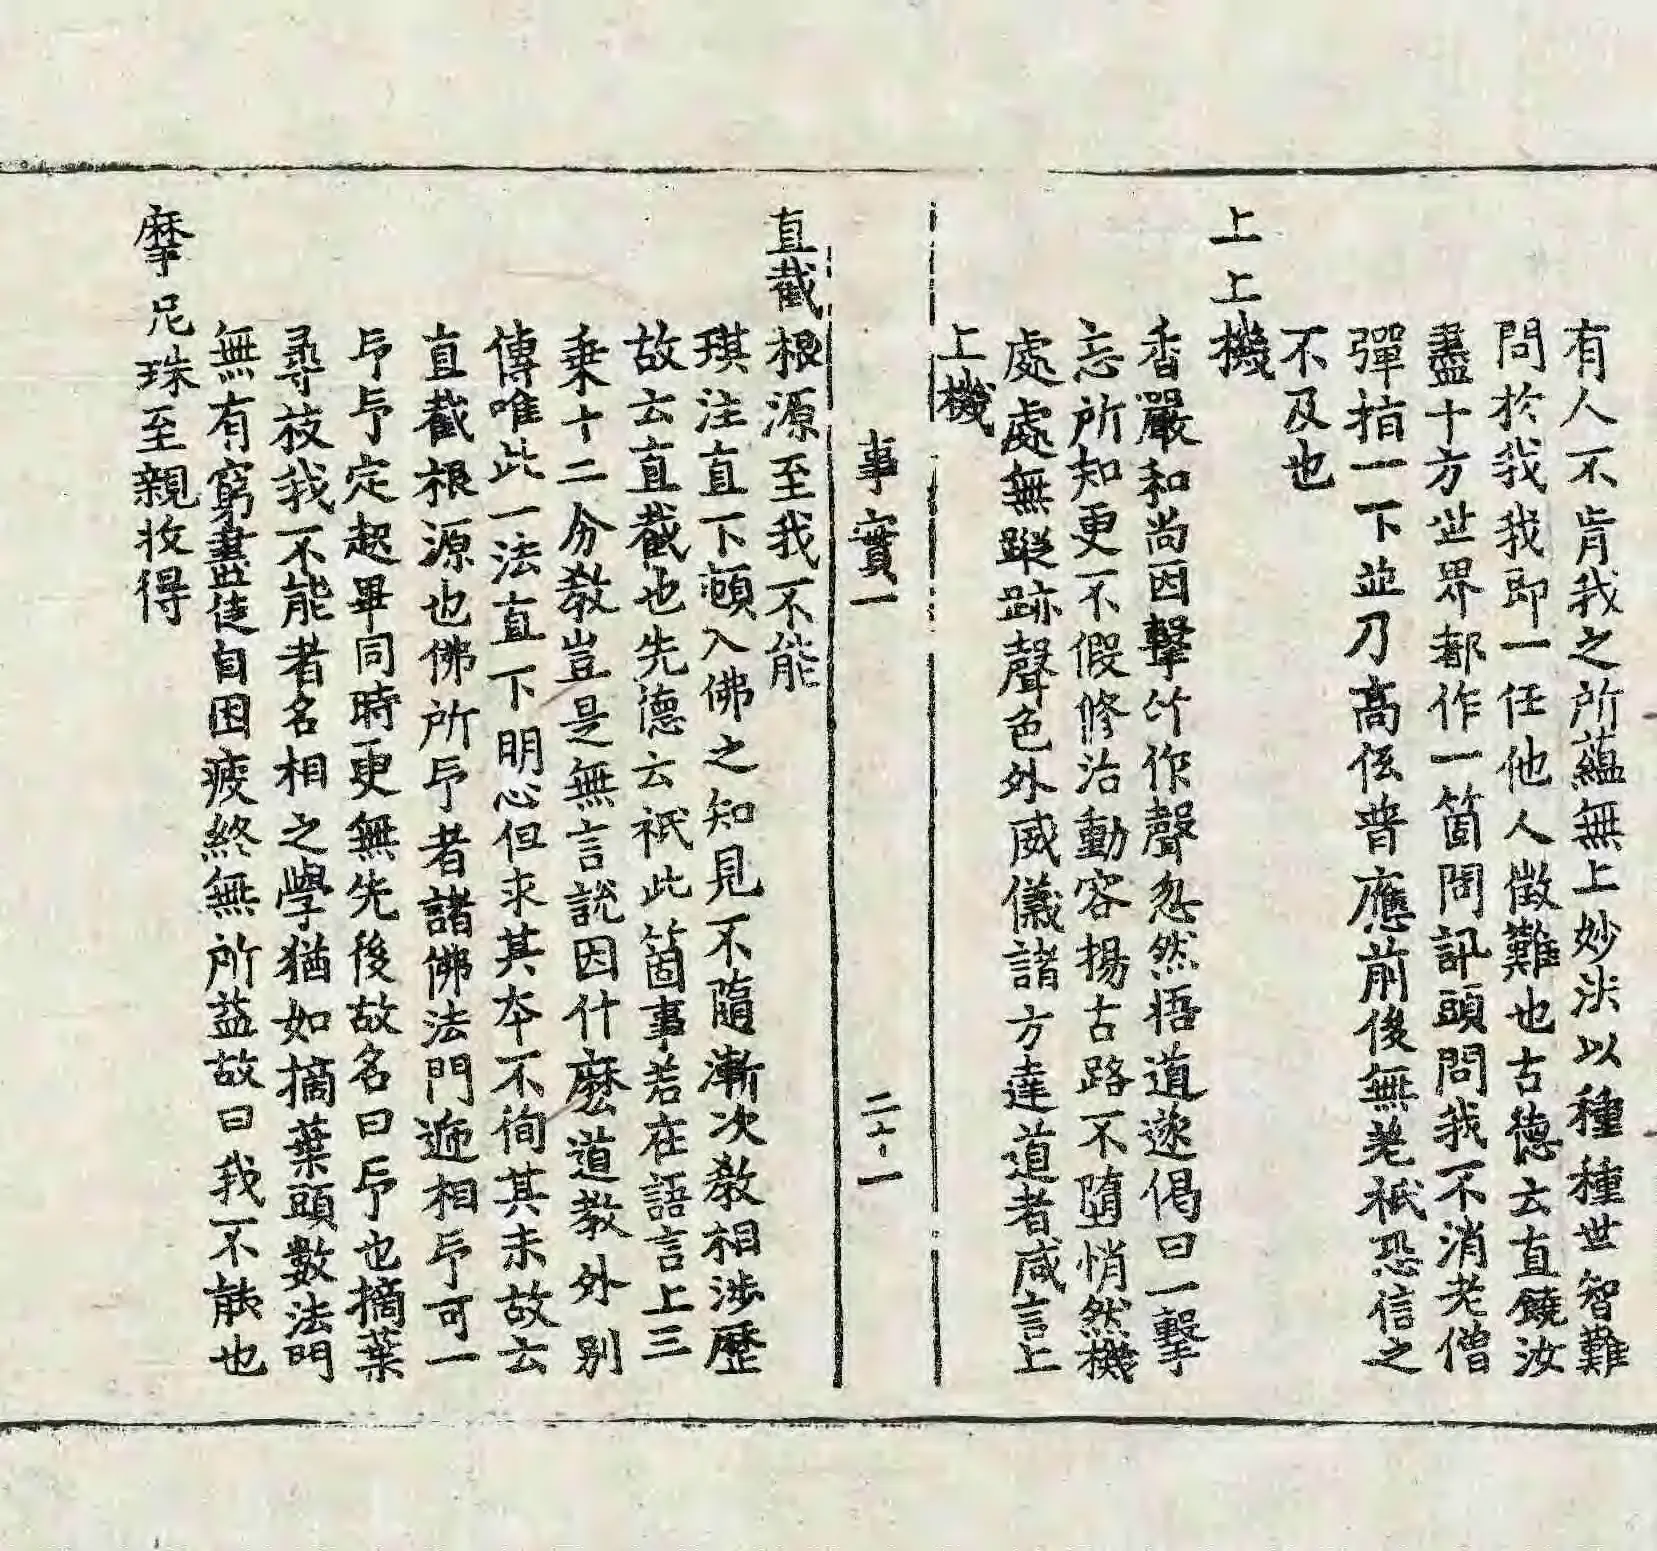 有人不肯我之所蘊無上妙法以種種世智難
問於我我即一任他人徵難也古德云直饒汝
盡十方世界都作一箇問訊頭問我不消老僧
彈指一下並乃高低普應前後無差祇恐信之
不及也
上上機
香嚴和尚因擊竹作聲忽然悟道遂偈曰一擊
忘所知更不假修治動容揚古路不墮悄然機
處處無蹤跡聲色外威儀諸方達道者咸言上
上機
事實一
二十一
直截根源至我不能
琪注直下頓入佛之知見不隨漸次教相涉歷
故云直截也先德云祇此箇事若在語言上三
乗十二分教豈是無言說因什麼道教外別
傳唯此一法直下明心但求其本不徇其末故云
直截根源也佛所印者諸佛法門遞相印可一
印印定起畢同時更無先後故名曰印也摘葉
尋枝我不能者名相之學猶如摘葉頭數法門
無有窮盡徒自困疲終無所益故曰我不能也
摩尼珠至親收得